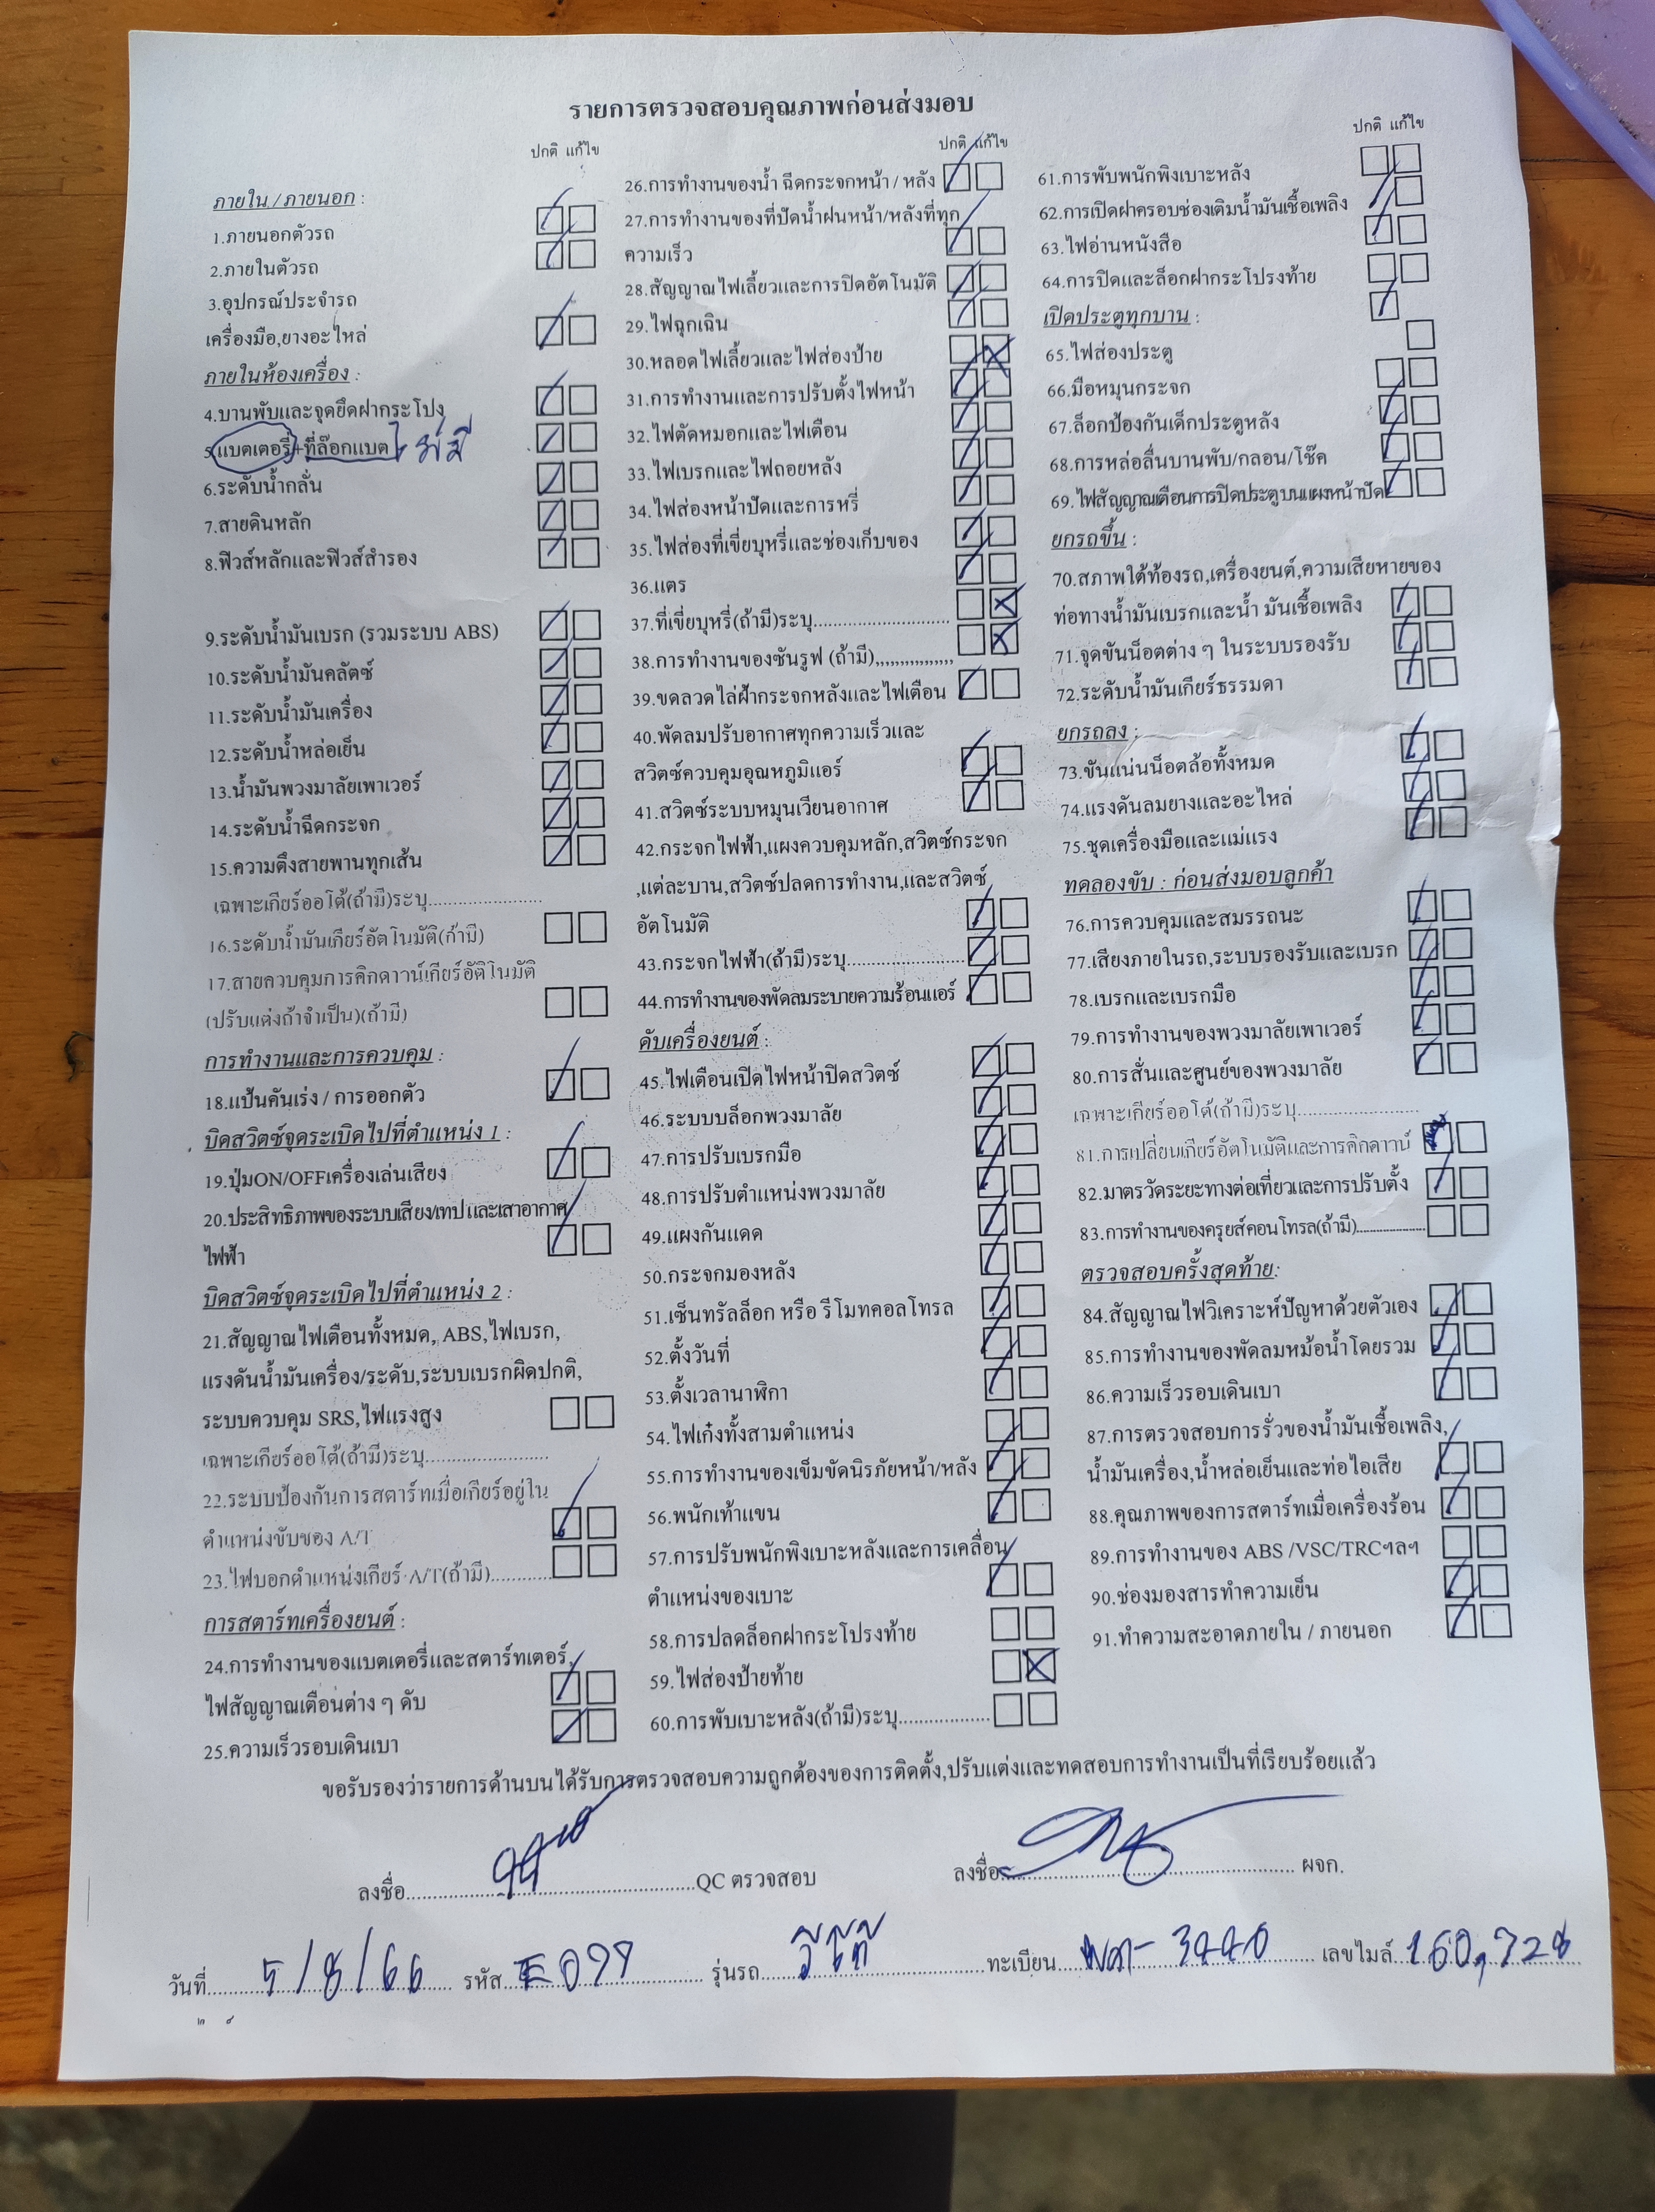 รายการตรวจสอบคุณภาพก่อนส่งมอบ
ปกติ แก้ไข
ภายใน / ภายนอก :
1.ภายนอกตัวรถ
2.ภายในตัวรถ
3.อุปกรณ์ประจำรถ
เครื่องมือ,ยางอะไหล่
ภายในห้องเครื่อง :
4.บานพับและจุดยึดฝากระโปง
5.แบตเตอรี่+ที่ล๊อกแบต ไม่มี
6.ระดับน้ำกลั่น
7.สายดินหลัก
8.ฟิวส์หลักและฟิวส์สำรอง
9.ระดับน้ำมันเบรก (รวมระบบ ABS)
10.ระดับน้ำมันคลัตซ์
11.ระดับน้ำมันเครื่อง
12.ระดับน้ำหล่อเย็น
13.น้ำมันพวงมาลัยเพาเวอร์
14.ระดับน้ำฉีดกระจก
15.ความตึงสายพานทุกเส้น
เฉพาะเกียร์ออโต้(ถ้ามี)ระบุ......................
16.ระดับน้ำมันเกียร์อัตโนมัติ(ถ้ามี)
17.สายควบคุมการคิกดาวน์เกียร์อัติโนมัติ
(ปรับแต่งถ้าจำเป็น)(ถ้ามี)
การทำงานและการควบคุม :
18.แป้นคันเร่ง / การออกตัว
บิดสวิตซ์จุดระเบิดไปที่ตำแหน่ง 1 :
19.ปุ่มON/OFFเครื่องเล่นเสียง
20.ประสิทธิภาพของระบบเสียง/เทป และเสาอากาศ
ไฟฟ้า
บิดสวิตซ์จุดระเบิดไปที่ตำแหน่ง 2 :
21.สัญญาณไฟเตือนทั้งหมด, ABS,ไฟเบรก,
แรงดันน้ำมันเครื่อง/ระดับ,ระบบเบรกผิดปกติ,
ระบบควบคุม SRS,ไฟแรงสูง
เฉพาะเกียร์ออโต้(ถ้ามี)ระบุ........................
22.ระบบป้องกันการสตาร์ทเมื่อเกียร์อยู่ใน
ตำแหน่งขับของ A/T
23.ไฟบอกตำแหน่งเกียร์ A/T(ถ้ามี)............
การสตาร์ทเครื่องยนต์ :
24.การทำงานของแบตเตอรี่และสตาร์ทเตอร์,
ไฟสัญญาณเตือนต่าง ๆ ดับ
25.ความเร็วรอบเดินเบา
ปกติ แก้ไข
26.การทำงานของน้ำ ฉีดกระจกหน้า / หลัง
27.การทำงานของที่ปัดน้ำฝนหน้า/หลังที่ทุก
ความเร็ว
28.สัญญาณไฟเลี้ยวและการปิดอัตโนมัติ
29.ไฟฉุกเฉิน
30.หลอดไฟเลี้ยวและไฟส่องป้าย
31.การทำงานและการปรับตั้งไฟหน้า
32.ไฟตัดหมอกและไฟเตือน
33.ไฟเบรกและไฟถอยหลัง
34.ไฟส่องหน้าปัดและการหรี่
35.ไฟส่องที่เขี่ยบุหรี่และช่องเก็บของ
36.แตร
37.ที่เขี่ยบุหรี่(ถ้ามี)ระบุ...........................
38.การทำงานของซันรูฟ (ถ้ามี),,,,,,,,,,,,,,,,
39.ขดลวดไล่ฝ้ากระจกหลังและไฟเตือน
40.พัดลมปรับอากาศทุกความเร็วและ
สวิตซ์ควบคุมอุณหภูมิแอร์
41.สวิตซ์ระบบหมุนเวียนอากาศ
42.กระจกไฟฟ้า,แผงควบคุมหลัก,สวิตซ์กระจก
,แต่ละบาน,สวิตซ์ปลดการทำงาน,และสวิตซ์
อัตโนมัติ
43.กระจกไฟฟ้า(ถ้ามี)ระบุ.......................
44.การทำงานของพัดลมระบายความร้อนแอร์
ดับเครื่องยนต์ :
45.ไฟเตือนเปิดไฟหน้าปิดสวิตซ์
46.ระบบบล็อกพวงมาลัย
47.การปรับเบรกมือ
48.การปรับตำแหน่งพวงมาลัย
49.แผงกันแดด
50.กระจกมองหลัง
51.เซ็นทรัลล็อก หรือ รีโมทคอลโทรล
52.ตั้งวันที่
53.ตั้งเวลานาฬิกา
54.ไฟเก๋งทั้งสามตำแหน่ง
55.การทำงานของเข็มขัดนิรภัยหน้า/หลัง
56.พนักเท้าแขน
57.การปรับพนักพิงเบาะหลังและการเคลื่อน
ตำแหน่งของเบาะ
58.การปลดล็อกฝากระโปรงท้าย
59.ไฟส่องป้ายท้าย
60.การพับเบาะหลัง(ถ้ามี)ระบุ..................
ปกติ แก้ไข
61.การพับพนักพิงเบาะหลัง
62.การเปิดฝาครอบช่องเติมน้ำมันเชื้อเพลิง
63.ไฟอ่านหนังสือ
64.การปิดและล็อกฝากระโปรงท้าย
เปิดประตูทุกบาน :
65.ไฟส่องประตู
66.มือหมุนกระจก
67.ล็อกป้องกันเด็กประตูหลัง
68.การหล่อลื่นบานพับ/กลอน/โช๊ค
69.ไฟสัญญาณเตือนการปิดประตูบนแผงหน้าปัด
ยกรถขึ้น :
70.สภาพใต้ท้องรถ,เครื่องยนต์,ความเสียหายของ
ท่อทางน้ำมันเบรกและน้ำ มันเชื้อเพลิง
71.จุดขันน็อตต่าง ๆ ในระบบรองรับ
72.ระดับน้ำมันเกียร์ธรรมดา
ยกรถลง :
73.ขันแน่นน็อตล้อทั้งหมด
74.แรงดันลมยางและอะไหล่
75.ชุดเครื่องมือและแม่แรง
ทดลองขับ : ก่อนส่งมอบลูกค้า
76.การควบคุมและสมรรถนะ
77.เสียงภายในรถ,ระบบรองรับและเบรก
78.เบรกและเบรกมือ
79.การทำงานของพวงมาลัยเพาเวอร์
80.การสั่นและศูนย์ของพวงมาลัย
เฉพาะเกียร์ออโต้(ถ้ามี)ระบุ........................
81.การเปลี่ยนเกียร์อัตโนมัติและการคิกดาวน์
82.มาตรวัดระยะทางต่อเที่ยวและการปรับตั้ง
83.การทำงานของครุยส์คอนโทรล(ถ้ามี)......................
ตรวจสอบครั้งสุดท้าย:
84.สัญญาณไฟวิเคราะห์ปัญหาด้วยตัวเอง
85.การทำงานของพัดลมหม้อน้ำโดยรวม
86.ความเร็วรอบเดินเบา
87.การตรวจสอบการรั่วของน้ำมันเชื้อเพลิง,
น้ำมันเครื่อง,น้ำหล่อเย็นและท่อไอเสีย
88.คุณภาพของการสตาร์ทเมื่อเครื่องร้อน
89.การทำงานของ ABS /VSC/TRCฯลฯ
90.ช่องมองสารทำความเย็น
91.ทำความสะอาดภายใน / ภายนอก
ขอรับรองว่ารายการด้านบนได้รับการตรวจสอบความถูกต้องของการติดตั้ง,ปรับแต่งและทดสอบการทำงานเป็นที่เรียบร้อยแล้ว
ลงชื่อ..........QC ตรวจสอบ ลงชื่อ.......... ผจก.
วันที่ 5/8/66 รหัส E099 รุ่นรถ วีโก้ ทะเบียน เลขไมล์ 160,728